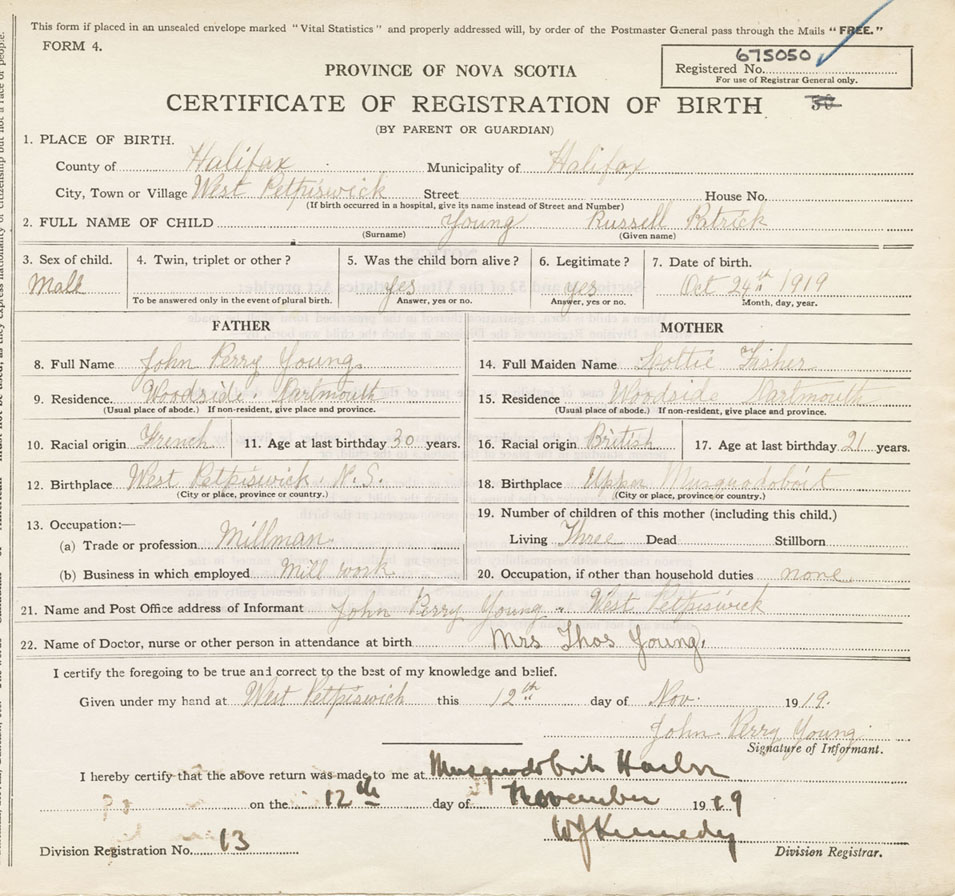 This form if placed in an unsealed envelope marked "Vital Statistics" and properly addressed will, by order of the Postmaster General pass through the Mails "FREE."
FORM 4.
675050
Registered No.
For use of Registrar General only.
PROVINCE OF NOVA SCOTIA
CERTIFICATE OF REGISTRATION OF BIRTH 30
(BY PARENT OR GUARDIAN)
1. PLACE OF BIRTH.
County of Halifax Municipality of Halifax
City, Town or Village West Petpiswick Street House No.
(If birth occurred in a hospital, give its name instead of Street and Number)
2. FULL NAME OF CHILD Young Russell Patrick
(Surname) (Given name)
3. Sex of child. 4. Twin, triplet or other? 5. Was the child born alive? 6. Legitimate? 7. Date of birth.
Male yes yes Oct 24th 1919
To be answered only in the event of plural birth. Answer, yes or no. Answer, yes or no. Month, day, year.
FATHER MOTHER
8. Full Name John Perry Young. 14. Full Maiden Name Lottie Fisher
9. Residence. Woodside. Dartmouth 15. Residence Woodside Dartmouth
(Usual place of abode.) If non-resident, give place and province. (Usual place of abode.) If non-resident, give place and province.
10. Racial origin French 11. Age at last birthday 30 years. 16. Racial origin British 17. Age at last birthday 21 years.
12. Birthplace West Petpiswick. N.S. 18. Birthplace Upper Musquodoboit
(City or place, province or country.) (City or place, province or country.)
19. Number of children of this mother (including this child.)
13. Occupation:—
(a) Trade or profession Millman Living Three Dead Stillborn
(b) Business in which employed Mill work 20. Occupation, if other than household duties none
21. Name and Post Office address of Informant John Perry Young - West Petpiswick
22. Name of Doctor, nurse or other person in attendance at birth Mrs Thos Young.
I certify the foregoing to be true and correct to the best of my knowledge and belief.
Given under my hand at West Petpiswick this 12th day of Nov. 1919.
John Perry Young
Signature of Informant.
I hereby certify that the above return was made to me at Musquodoboit Harbor
on the 12th day of November 1919
WJ Kennedy
Division Registration No. 13 Division Registrar.